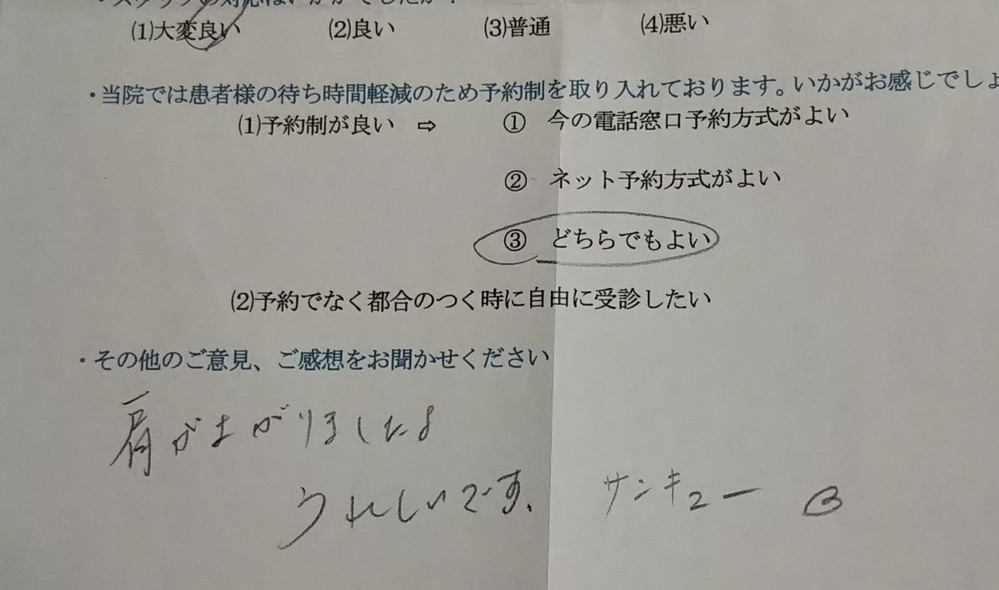 ・スタッフの対応はいかがでしたか？
(1)大変良い (2)良い (3)普通 (4)悪い
・当院では患者様の待ち時間軽減のため予約制を取り入れております。いかがお感じでしょ
(1)予約制が良い ⇨ ① 今の電話窓口予約方式がよい
② ネット予約方式がよい
③ どちらでもよい
(2)予約でなく都合のつく時に自由に受診したい
・その他のご意見、ご感想をお聞かせください
肩が上がりましたよ
うれしいです、 サンキュー